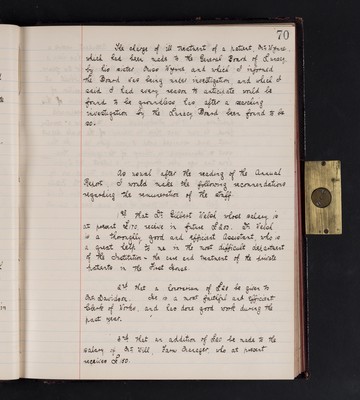 70
The charge of ill treatment of a patient, Mr. Wynne
which had been made to the General Board of Lunacy
by his sister Miss Wynne and which I informed
the Board was being under investigation and which I
said I had every reason to anticipate would be
found to be groundless has after a searching
investigation by the Lunacy Board been found to be
so.
As usual after the reading of the Annual
Report, I would make the following recommendations
regarding the remuneration of the staff.
1st That Dr. Gilbert Welsh whose salary is
at present £170, receive in future £200. Dr. Welsh
is a thoroughly good and efficient Assistant, who is
a great help to me in the most difficult department
of the Institution - the care and treatment of the private
patients in the First House.
2nd That a honorarium of £50 be given to
Mr. Davidson. He is a most faithful and efficient
Clerk of Works, and has done good work during the
past year.
That an addition of £20 be made to the
salary of Mr. Will, Farm Manager, who at present
receives £150.